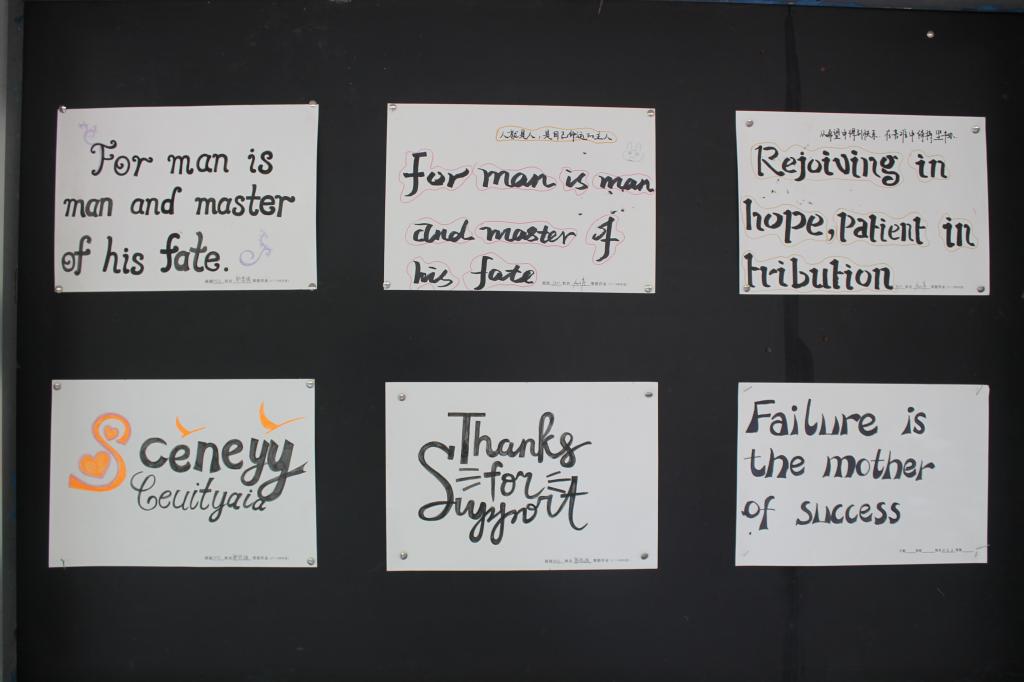 For man is
man and master
of his fate.
人就是人，是自己命运的主人
for man is man
and master of
his fate
从希望中得到快乐，在苦难中保持坚韧.
Rejoiving in
hope, patient in
tribution
Sceneyy
Ceuityaia
Thanks
for
Support
Failure is
the mother
of success